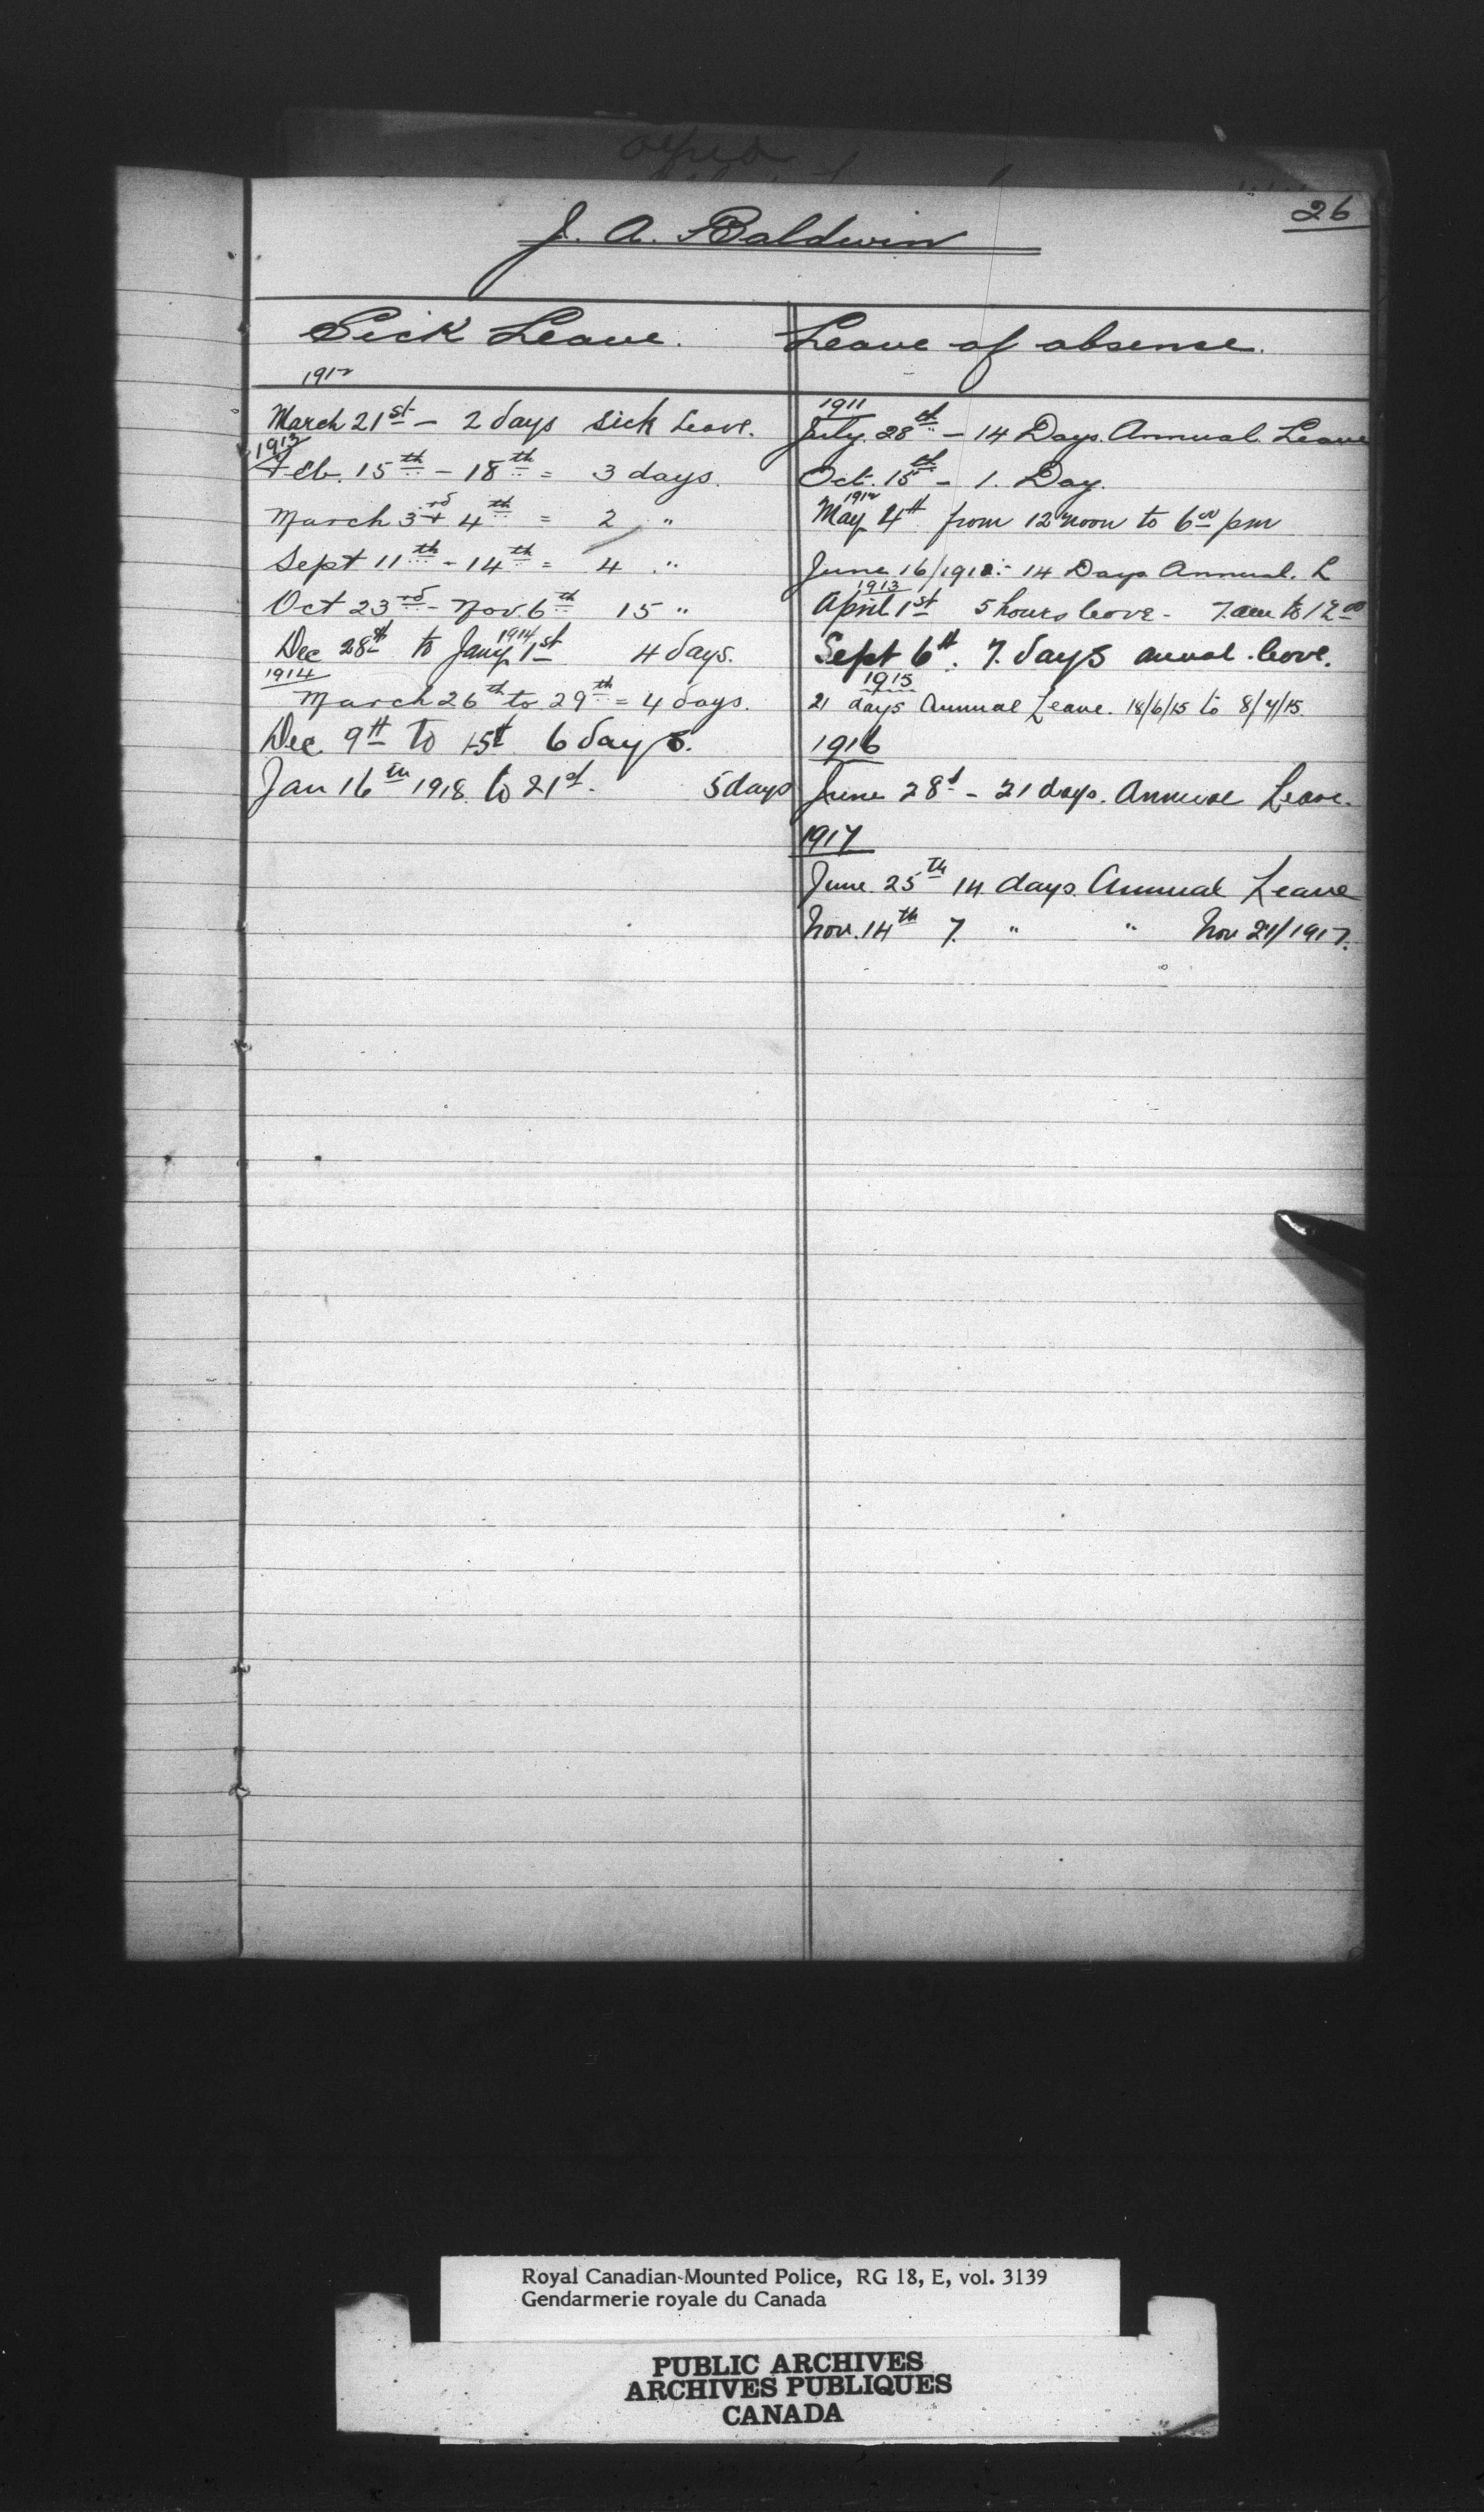 26
J. A. Baldwin
Sick Leave.
1912
March 21st - 2 days sick leave.
1913
Feb. 15th - 18th = 3 days.
March 3rd + 4th = 2 "
Sept 11th - 14th = 4 "
Oct 23rd - Nov. 6th 15 "
Dec 28th to Jany 1st 1914 4 days.
1914
March 26th to 29th = 4 days.
Dec. 9th to 15t 6 days.
Jan 16th 1918 to 21st. 5 days
Leave of absence.
1911
July 28th - 14 Days. Annual. Leave
Oct. 15th - 1. Day.
1912
May 4th from 12 noon to 6 00 pm
June 16/1912 :- 14 Days Annual. L
1913
April 1st 5 hours leave - 7. am to 12 00
Sept 6th. 7. days anual leave.
1915
21 days Annual Leave. 18/6/15 to 8/7/15.
1916
June 28th - 21 days. Annual Leave.
1917
June 25th 14 days Annual Leave
Nov. 14th 7. " " Nov 21/1917.
Royal Canadian Mounted Police, RG 18, E, vol. 3139
Gendarmerie royale du Canada
PUBLIC ARCHIVES
ARCHIVES PUBLIQUES
CANADA